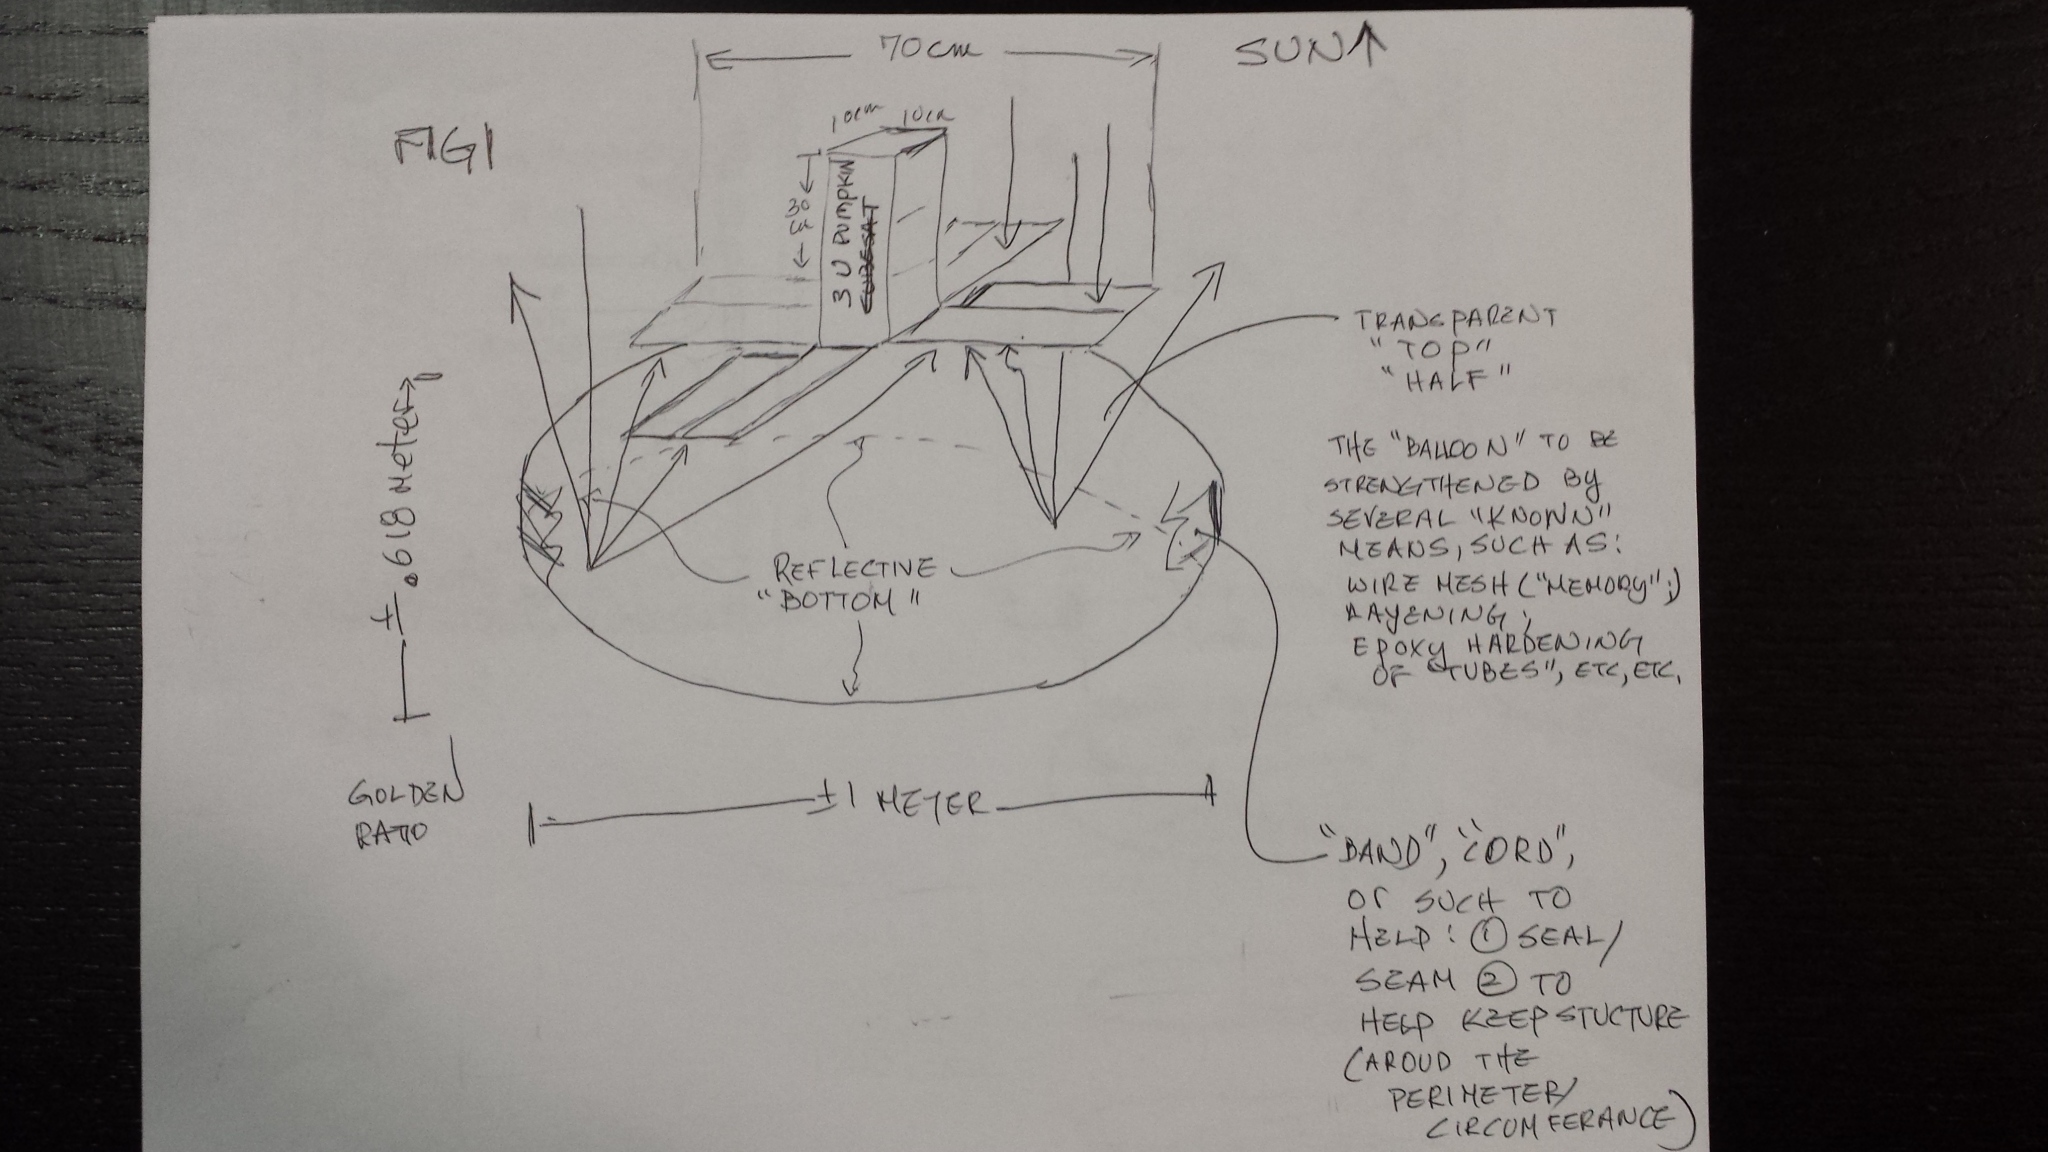 70cm
SUN
FIG1
10cm
10cm
30
cm
3 U PUMPKIN
CUBESAT
TRANSPARENT
"TOP"
"HALF"
THE "BALLOON" TO BE
STRENGTHENED BY
SEVERAL "KNOWN"
MEANS, SUCH AS:
WIRE MESH ("MEMORY";)
LAYENING;
EPOXY HARDENING
OF "TUBES", ETC, ETC.
REFLECTIVE
"BOTTOM"
± .618 meter
GOLDEN
RATIO
±1 METER
"BAND", "CORD",
Or SUCH TO
HELP: ① SEAL/
SEAM ② TO
HELP KEEP STUCTURE
(AROUD THE
PERIMETER/
CIRCUMFERANCE)